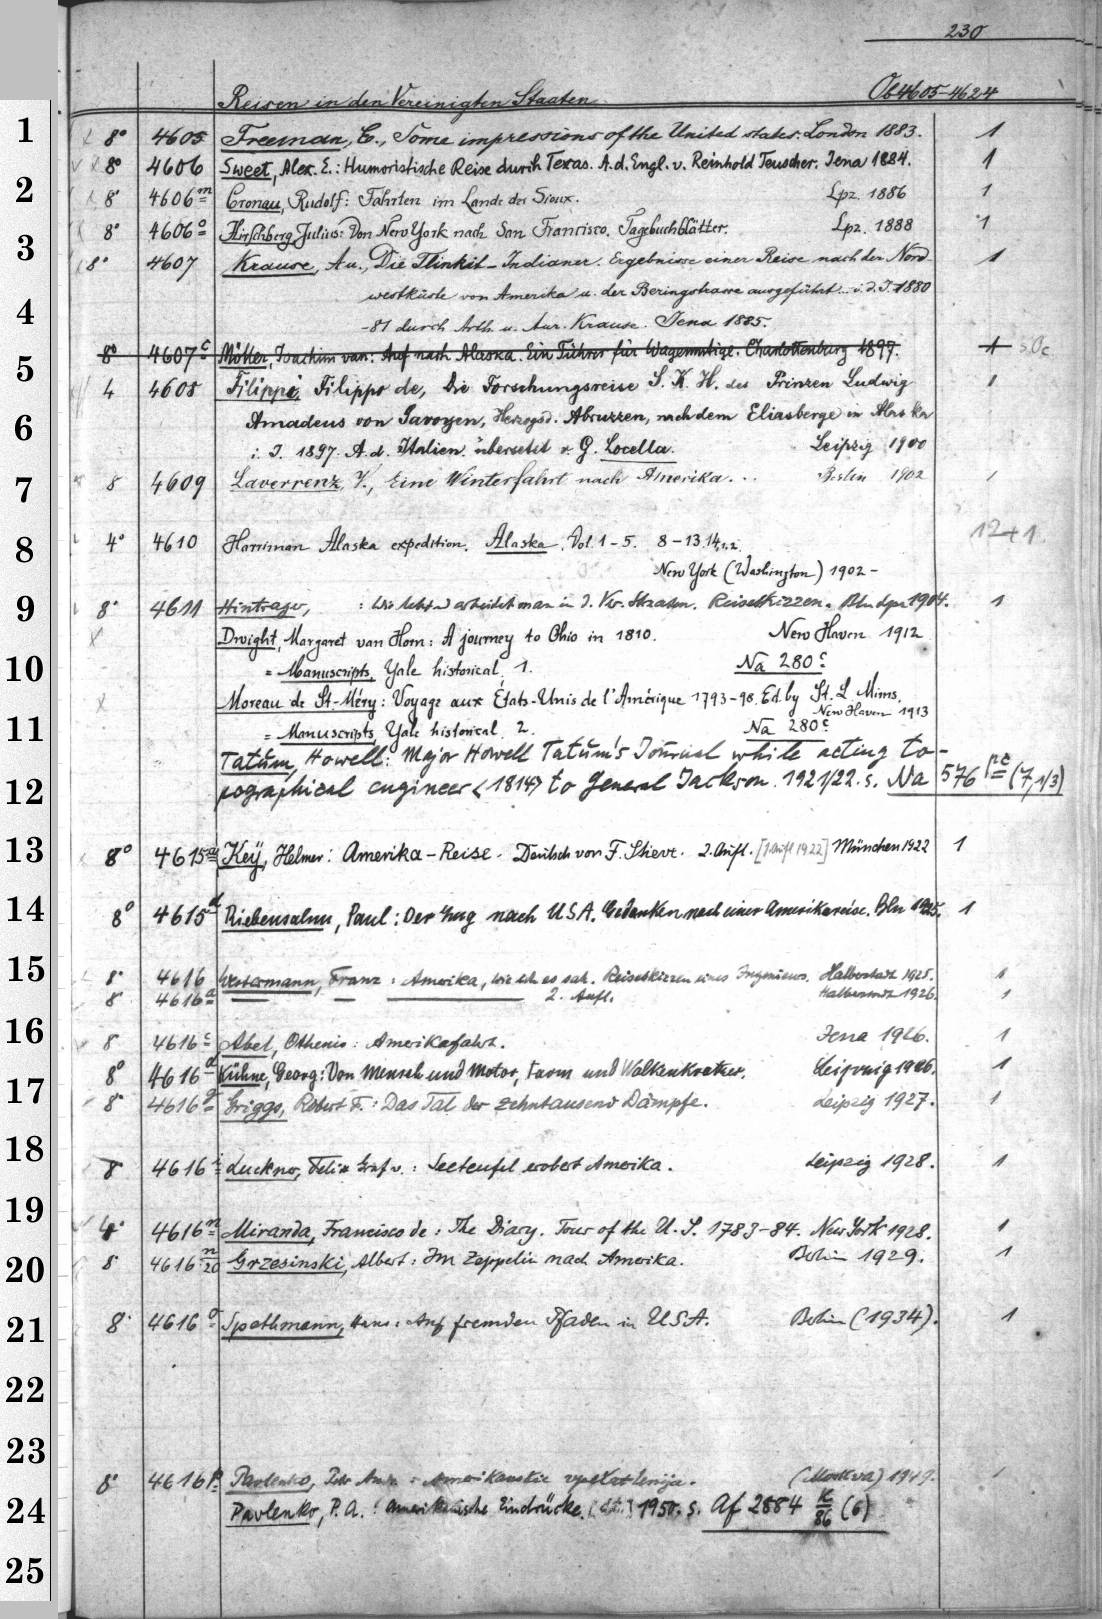 230
Reisen in den Vereinigten Staaten. Ob 4605-4624
1 8° 4605 Freeman, E., Some impressions of the United states. London 1883. 1
8° 4606 Sweet, Alex. E.: Humoristische Reise durch Texas. A. d. Engl. v. Reinhold Teuscher. Jena 1884. 1
2 8° 4606m Cronau, Rudolf: Fahrten im Lande der Sioux. Lpz. 1886 1
8° 4606o Hirschberg, Julius: Von New York nach San Francisco. Tagebuchblätter. Lpz. 1888 1
3 8° 4607 Krause, Au., Die Tlinkit-Indianer. Ergebnisse einer Reise nach der Nord
westküste von Amerika u. der Beringstrasse ausgeführt i. d. J. 1880
4 -81 durch Arth. u. Aur. Krause. Jena 1885.
5 8° 4607c Möller, Joachim van: Auf nach Alaska. Ein Führer für Wagemutige. Charlottenburg 1897. 1
4 4608 Filippi, Filippo de, Die Forschungsreise S. K. H. des Prinzen Ludwig 1
6 Amadeus von Savoyen, Herzogs d. Abruzzen, nach dem Eliasberge in Alaska
i. J. 1897. A. d. Italien. übersetzt v. G. Locella. Leipzig 1900
7 8 4609 Laverrenz, V., Eine Winterfahrt nach Amerika. .. Berlin 1902 1
8 4° 4610 Harriman Alaska expedition. Alaska. Vol. 1-5. 8-13.14,1.2. 12+1.
New York (Washington) 1902-
9 8° 4611 Hintrager, : Wie lebt u. arbeitet man in d. Ver. Staaten. Reiseskizzen. 1904. 1
Dwight, Margaret van Horn: A journey to Ohio in 1810. New Haven 1912
10 = Manuscripts, Yale historical, 1. Na 280c
Moreau de St-Méry: Voyage aux États-Unis de l'Amérique 1793-98. Ed. by St. L. Mims.
New Haven 1913
11 = Manuscripts, Yale historical, 2. Na 280c
Tatum, Howell: Major Howell Tatum's Journal while acting to-
12 pographical engineer <1814> to General Jackson. 1921/22. s. Na 576 (7,1/3)
13 8° 4615a Key, Helmer: Amerika-Reise. Deutsch von F. Stieve. 2. Aufl. [1. Aufl. 1922] München 1922 1
14 8° 4615d Riebensahm, Paul: Der Zug nach USA. Gedanken nach einer Amerikareise. Bln 1925. 1
15 8° 4616 Westermann, Franz: Amerika, wie ich es sah. Reiseskizzen eines Ingenieurs. Halberstadt 1925. 1
8 4616a — — — 2. Aufl. Halberstadt 1926. 1
16 8 4616c Abel, Othenio: Amerikafahrt. Jena 1926. 1
8° 4616d Kühne, Georg: Von Mensch und Motor, Farm und Wolkenkratzer. Leipzig 1926. 1
17 8 4616g Griggs, Robert F.: Das Tal der zehntausend Dämpfe. Leipzig 1927. 1
18 8 4616i Luckner, Felix Graf v.: Seeteufel erobert Amerika. Leipzig 1928. 1
19 4° 4616m Miranda, Francisco de: The Diary. Tour of the U. S. 1783-84. New York 1928. 1
20 8 4616n/20 Grzesinski, Albert: Im Zeppelin nach Amerika. Berlin 1929. 1
21 8° 4616o Spethmann, Hans: Auf fremden Pfaden in USA. Berlin (1934). 1
22
23
8° 4616p Pavlenko, Petr Amerikanskie vpečatlenija. (Moskva) 1949. 1
24 Pavlenko, P. A.: Amerikanische Eindrücke. [dt.] 1950. s. Af 2884 K/86 (6)
25